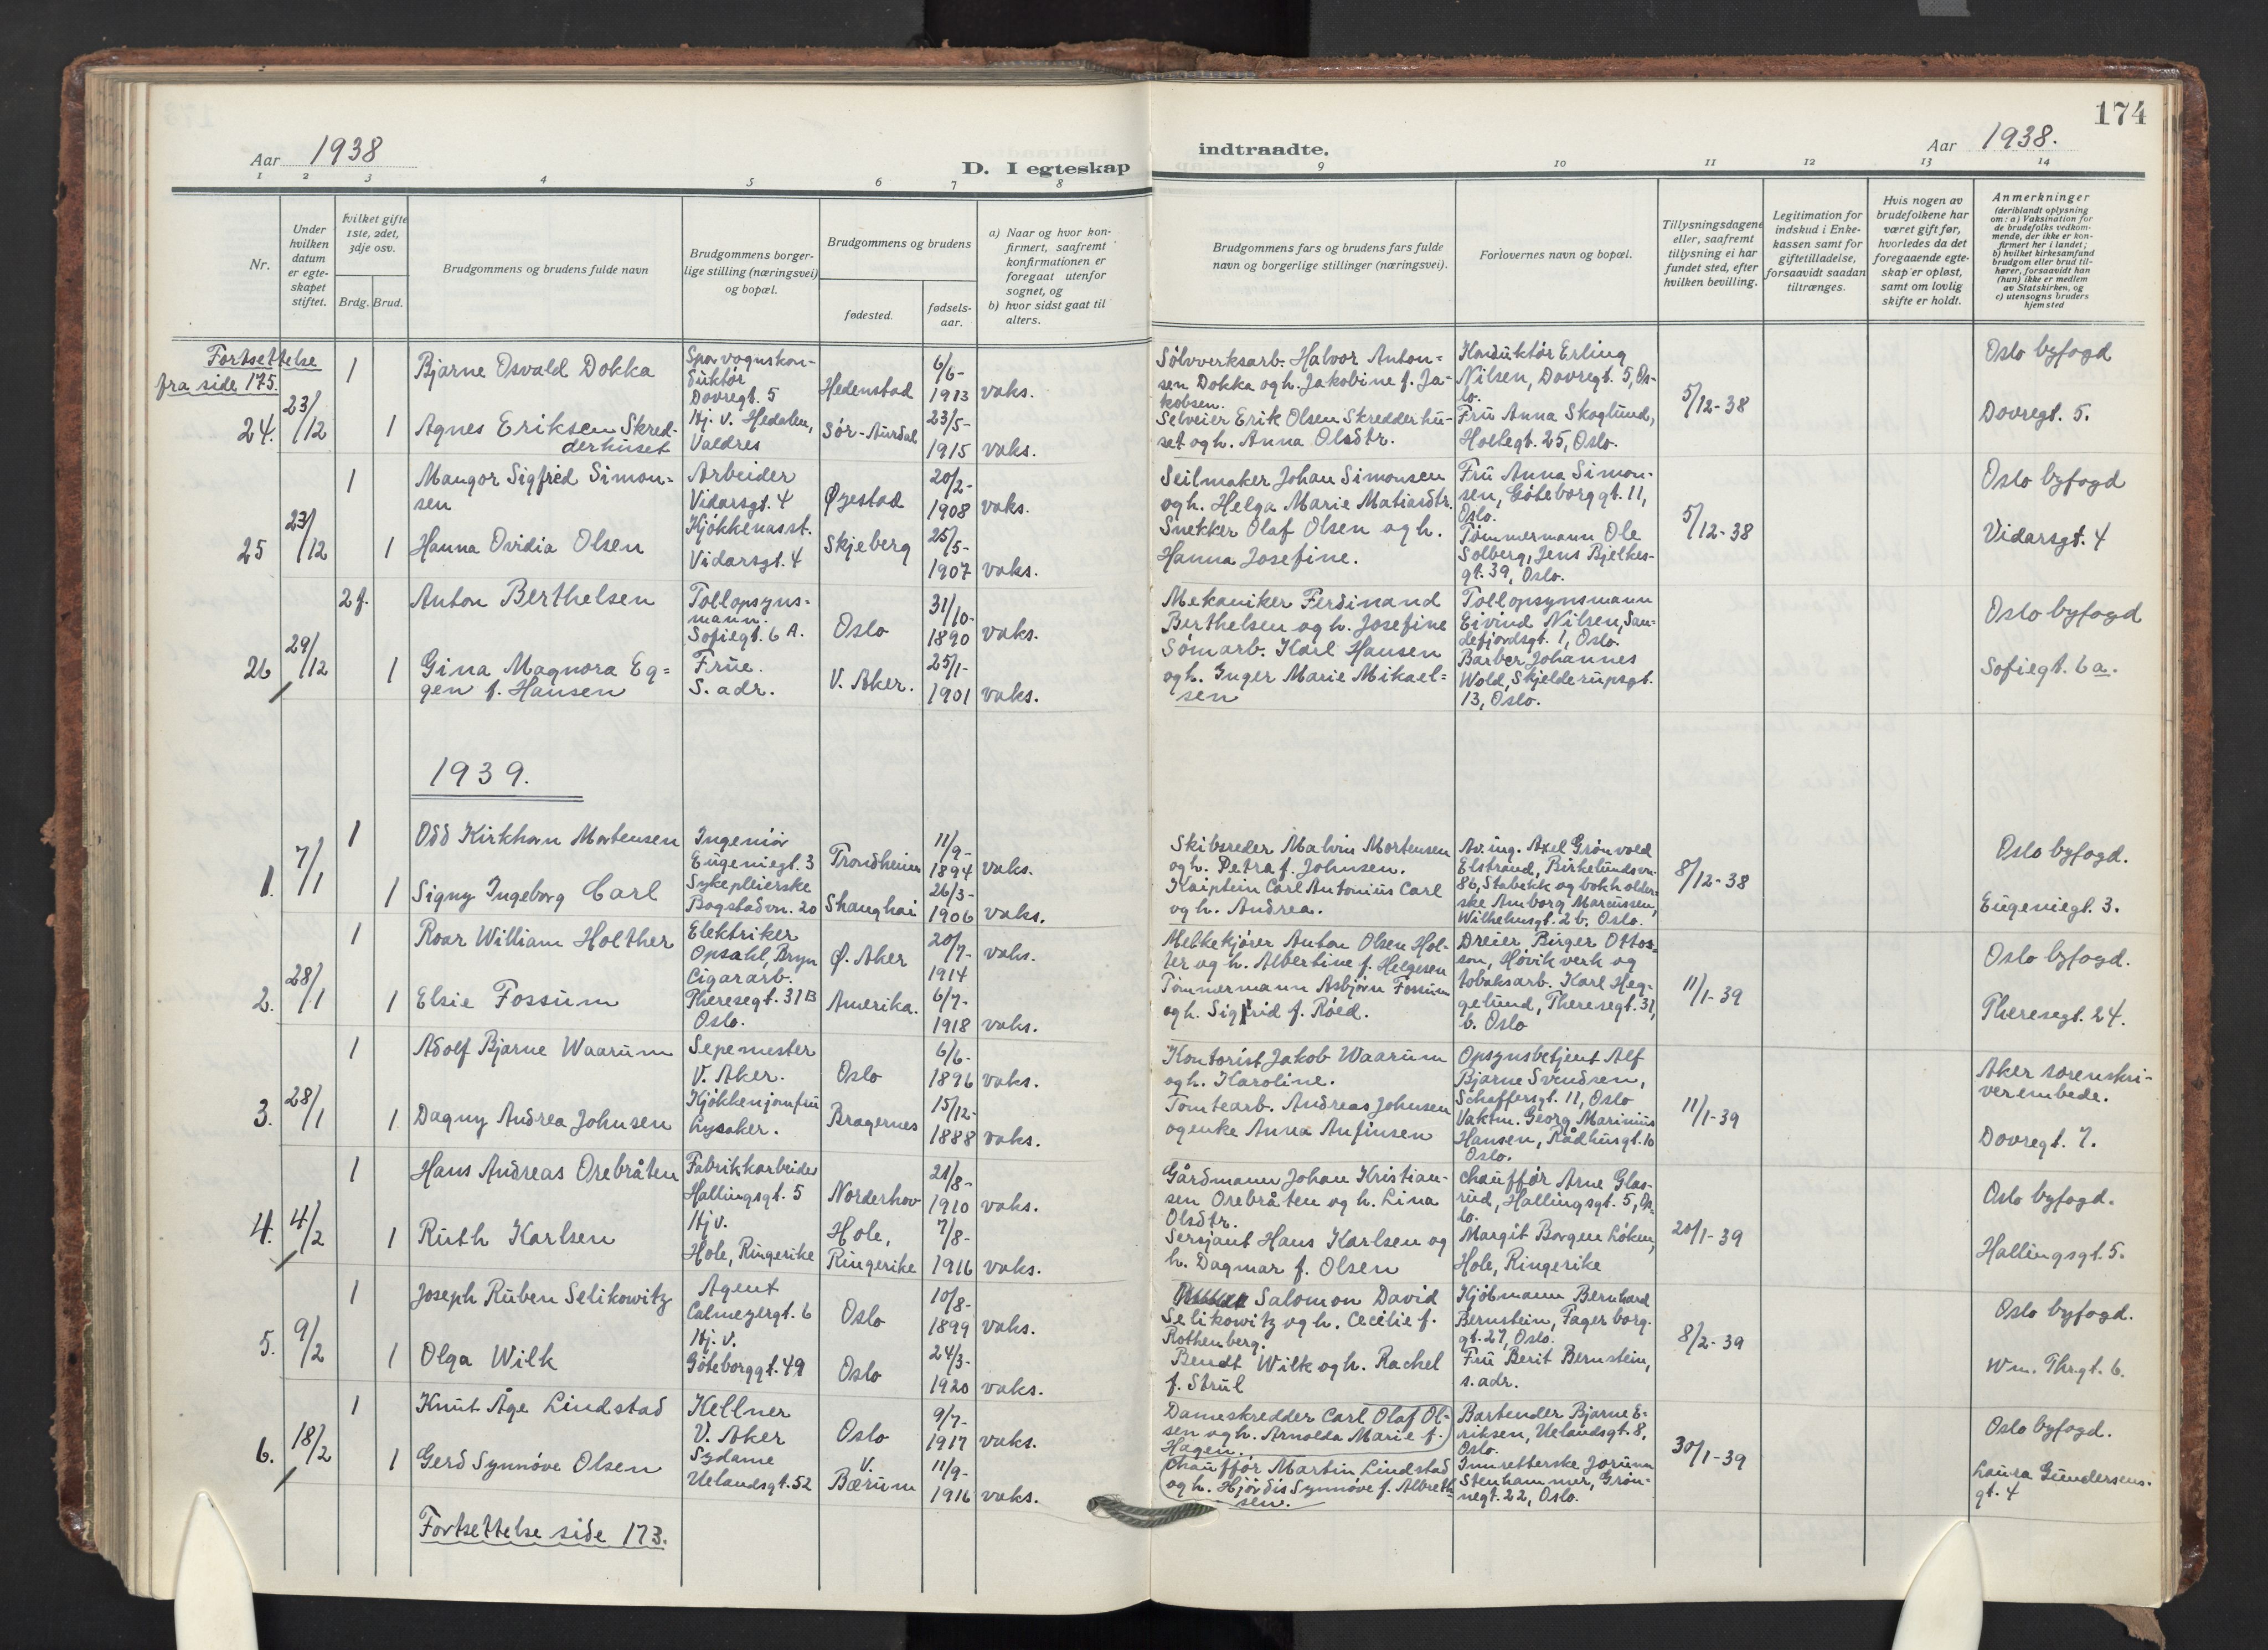 174
Aar 1938
D. I egteskap
indtraadte.
Aar 1938.
1 2 3 4 5 6 7 8 9 10 11 12 13 14
Nr.
Under
hvilken
datum
er egte-
skapet
stiftet.
hvilket gifte
1ste, 2det,
3dje osv.
Brdg. Brud.
Brudgommens og brudens fulde navn
Brudgommens borger-
lige stilling (næringsvei)
og bopæl.
Brudgommens og brudens
fødested.
fødsels-
aar.
a) Naar og hvor kon-
firmert, saafremt
konfirmationen er
foregaat utenfor
sognet, og
b) hvor sidst gaat til
alters.
Brudgommens fars og brudens fars fulde
navn og borgerlige stillinger (næringsvei).
Forlovernes navn og bopæl.
Tillysningsdagene
eller, saafremt
tillysning ei har
fundet sted, efter
hvilken bevilling.
Legitimation for
indskud i Enke-
kassen samt for
giftetilladelse,
forsaavidt saadan
tiltrænges.
Hvis nogen av
brudefolkene har
været gift før,
hvorledes da det
foregaaende egte-
skap er opløst,
samt om lovlig
skifte er holdt.
Anmerkninger
(deriblandt oplysning
om: a) Vaksination for
de brudefolks vedkom-
mende, der ikke er kon-
firmert her i landet;
b) hvilket kirkesamfund
brudgom eller brud til-
hører, forsaavidt han
(hun) ikke er medlem
av Statskirken, og
c) utensogns bruders
hjemsted
Fortsettelse
fra side 175.
24. 23/12
1
Bjarne Osvald Dokka
Sporvognskon-
duktør
Dovregt. 5
Hedenstad
6/6-
1913
vaks.
1
Agnes Eriksen Skred-
derhuset
Hj. v. Hedalen,
Valdres
Sør-Aurdal
23/5-
1915
vaks.
Sølvverksarb. Halvor Anton-
sen Dokka og h. Jakobine f. Ja-
kobsen.
Selveier Erik Olsen Skredderhu-
set og h. Anna Olsdtr.
Konduktør Erling
Nilsen, Dovregt. 5, Os-
lo.
Fru Anna Skoglund,
Holtegt. 25, Oslo.
5/12-38
Oslo byfogd
Dovregt. 5.
25 23/12
1
Mangor Sigfred Simon-
sen
Arbeider
Vidarsgt. 4
Øyestad
20/2-
1908
vaks.
1
Hanna Ovidia Olsen
Kjøkkenasst.
Vidarsgt. 4
Skjeberg
25/5-
1907
vaks.
Seilmaker Johan Simonsen
og h. Helga Marie Matiasdtr.
Snekker Olaf Olsen og h.
Hanna Josefine.
Fru Anna Simon-
sen, Göteborggt. 11,
Oslo.
Tømmermann Ole
Solberg, Jens Bjelkes-
gt. 39, Oslo.
5/12-38
Oslo byfogd
Vidarsgt. 4
26 29/12
2 f.
Anton Berthelsen
Tollopsyns-
mann.
Sofiegt. 6 A.
Oslo
31/10-
1890
vaks.
1
Gina Magnora Eg-
gen f. Hansen
Frue.
S. adr.
V. Aker.
25/1-
1901
vaks.
Mekaniker Ferdinand
Berthelsen og h. Josefine
Sømarb. Karl Hansen
og h. Inger Marie Mikael-
sen
Tollopsynsmann
Eivind Nilsen, San-
defjordsgt. 1, Oslo.
Barber Johannes
Wold, Skjelderupsgt.
13, Oslo.
Oslo byfogd
Sofiegt. 6a.
1939.
1. 7/1
1
Odd Kirkhorn Mortensen
Ingeniør
Eugeniegt. 3
Trondheim
11/9-
1894
vaks.
1
Signy Ingeborg Carl
Sykepleierske
Bogstadvn. 20
Shanghai
26/3-
1906
vaks.
Skibsreder Malvin Mortensen
og h. Petra f. Johnsen.
Kaiptein Carl Antonius Carl
og h. Andrea.
Av. ing. Axel Grønvold
Elstrand, Birkelundsvn.
86, Stabekk og bokholder-
ske Amborg Marcussen,
Wilhelmsgt. 2 b, Oslo.
8/12-38
Oslo byfogd.
Eugeniegt. 3.
2. 28/1
1
Roar William Holther
Elektriker
Opsahl, Bryn
Ø. Aker
20/7-
1914
vaks.
1
Elsie Fossum
Cigararb.
Theresegt. 31 B
Oslo.
Amerika.
6/7-
1918
vaks.
Melkekjører Anton Olsen Hol-
ter og h. Albertine f. Helgesen
Tømmermann Asbjørn Fossum
og h. Sigrid f. Røed.
Dreier Birger Ottos-
son, Høvik verk og
tobaksarb. Karl Heg-
gelund, Theresegt. 31,
b. Oslo
11/1-39
Oslo byfogd.
Theresegt. 24.
3. 28/1
1
Adolf Bjarne Waarum
Sepemester
V. Aker.
Oslo
6/6-
1896
vaks.
1
Dagny Andrea Johnsen
Kjøkkenjomfru
Lysaker.
Bragernes
15/12-
1888
vaks.
Kontorist Jakob Waarum
og h. Karoline.
Tomtearb. Andreas Johnsen
og enke Anna Anfinsen
Opsynsbetjent Alf
Bjarne Svendsen,
Schaffersgt. 11, Oslo
Vaktm. Georg Marinius
Hansen, Rådhusgt. 10
Oslo.
11/1-39
Aker sorenskri-
verembede.
Dovregt. 7.
4. 4/2
1
Hans Andreas Orebråten
Fabrikkarbeider
Hallingsgt. 5
Norderhov
21/8-
1910
vaks.
1
Ruth Karlsen
Hj v.
Hole, Ringerike
Hole,
Ringerike
7/8-
1916
vaks.
Gårdmann Johan Kristian-
sen Orebråten og h. Lina
Olsdtr.
Sersjant Hans Karlsen og
h. Dagmar f. Olsen
Chauffør Arne Glas-
rud, Hallingsgt. 5, Os-
lo.
Margit Borgen Løken,
Hole, Ringerike
20/1-39
Oslo byfogd.
Hallingsgt. 5.
5. 9/2
1
Joseph Ruben Selikowitz
Agent
Calmeyergt. 6
Oslo
10/8-
1899
vaks.
1
Olga Wilk
Hj. v.
Göteborggt. 49
Oslo
24/3-
1920
vaks.
Salomon David
Selikowitz og h. Cecilie f.
Rothenberg.
Bendt Wilk og h. Rachel
f. Strul
Kjøbmann Bernhard
Bernstein, Fagerborg-
gt. 27, Oslo.
Fru Berit Bernstein,
s. adr.
8/2-39
Oslo byfogd.
Wm. Thr.gt. 6.
6. 18/2
1
Knut Åge Lindstad
Kellner
V. Aker
Oslo
9/7-
1917
vaks.
1
Gerd Synnøve Olsen
Sydame
Uelandsgt. 52
V.
Bærum
11/9-
1916
vaks.
Dameskredder Carl Olaf Ol-
sen og h. Arnolda Marie f.
Hagen.
Chauffør Martin Lindstad
og h. Hjørdis Synnøve f. Albreth-
sen.
Bartender Bjarne E-
riksen, Uelandsgt. 8,
Oslo.
Innretterske Jorunn
Stenhammer, Grøn-
negt. 22, Oslo.
30/1-39
Oslo byfogd.
Laura Gundersens-
gt. 4
Fortsettelse side 173.